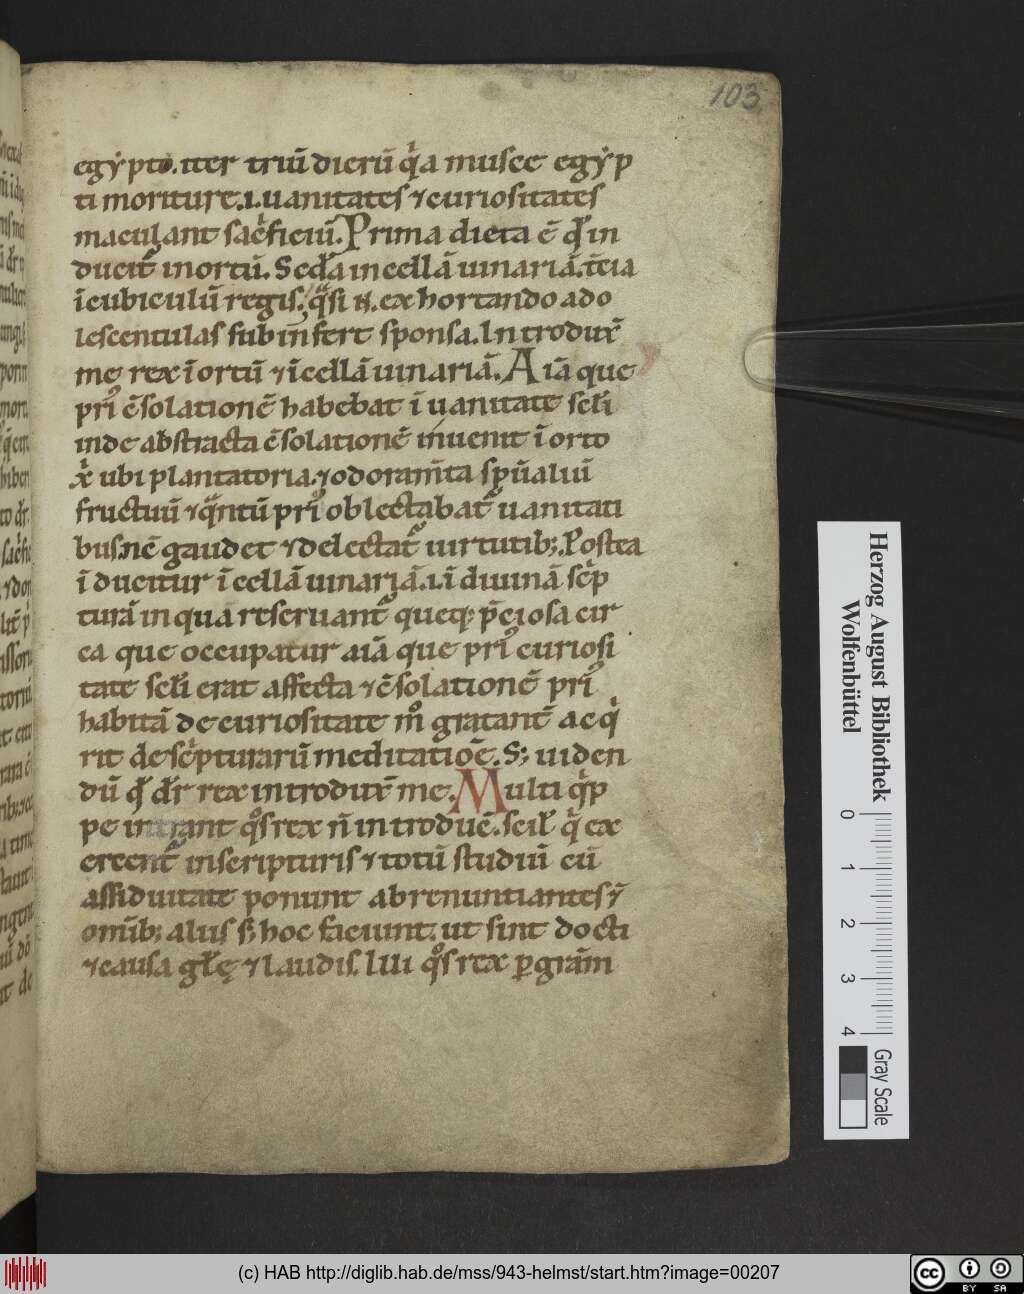 103
egẏpto. iter triū dierū q̇a musce egẏp
ti moriture .i. uanitates ⁊ curiositates
maculant sac̄ficiū. Prima dieta ē q̄ in
ducit᷑ in ortū. Scd̄a in cellā uinariā. t̄cia
ī cubiculū regis. q̄si .n. exhortando ado
lescentulas subinfert sponsa. Introdux̄
me rex ī ortū ⁊ ī cellā uinariā. Aīa que
pri᷒ c̄solationē habebat ī uanitate scl̄i
inde abstracta c̄solationē inuenit ī orto
x̄ ubi plantatoria. ⁊ odoram̄ta sp̄ualiū
fructuū ⁊ q̄ntū pri᷒ oblectabat᷑ uanitati
bus. nc̄ gaudet ⁊ delectat᷑ uirtutib;. Postea
ī ducitur ī cellā uinariā. i. ī diuinā sc̄p
turā in qua reseruant᷑ queq; p̄ciosa cir
ca que occupatur aīā que pri᷒ curiosi
tate scl̄i erat affecta ⁊ c̄solationē pri᷒
habitā de curiositate mͦ gratant̄ acq̇
rit de sc̄pturarū meditatiōe. S; uiden
dū q̄ dr̄ rex introdux̄ me. Multi q̇p
pe intrant qͦs rex n̄ introduc̄. scil̄ q̇ ex
ercent᷑ in scripturis ⁊ totū studiū cū
assiduitate ponunt abrenuntiantes ⁊
om̄ib; aliis s; hoc faciunt. ut sint docti
⁊ causa gl̄ę ⁊ laudis. Illi qͦs rex ꝑ grām
Herzog August Bibliothek
Wolfenbüttel
0 1 2 3 4
Gray Scale
(c) HAB http://diglib.hab.de/mss/943-helmst/start.htm?image=00207
cc BY SA